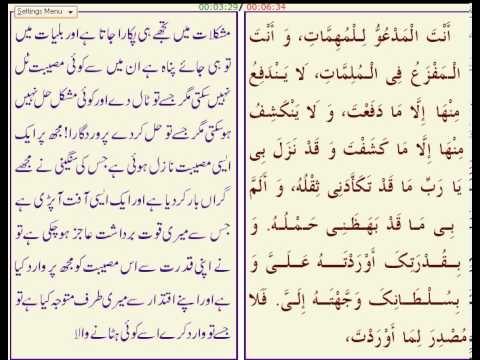 Settings Menu
00:03:29 / 00:06:34
أَنْتَ الْمَدْعُوُّ لِلْمُهِمَّاتِ، وَ أَنْتَ
الْمَفْزَعُ فِي الْمُلِمَّاتِ، لَا يَنْدَفِعُ
مِنْهَا إِلَّا مَا دَفَعْتَ، وَ لَا يَنْكَشِفُ
مِنْهَا إِلَّا مَا كَشَفْتَ وَ قَدْ نَزَلَ بِي
يَا رَبِّ مَا قَدْ تَكَأَّدَنِي ثِقْلُهُ، وَ أَلَمَّ
بِي مَا قَدْ بَهَظَنِي حَمْلُهُ. وَ
بِقُدْرَتِكَ أَوْرَدْتَهُ عَلَيَّ وَ
بِسُلْطَانِكَ وَجَّهْتَهُ إِلَيَّ. فَلَا
مُصْدِرَ لِمَا أَوْرَدْتَ،
مشکلات میں تجھے ہی پکارا جاتا ہے اور بلیات میں
تو ہی جائے پناہ ہے ان میں سے کوئی مصیبت ٹل
نہیں سکتی مگر جسے تو ٹال دے اور کوئی مشکل حل نہیں
ہوسکتی مگر جسے تو حل کر دے پروردگارا! مجھ پر ایک
ایسی مصیبت نازل ہوئی ہے جس کی سنگینی نے مجھے
گراں بار کر دیا ہے اور ایک ایسی آفت آپڑی ہے
جس سے میری قوت برداشت عاجز ہوچکی ہے تو
نے اپنی قدرت سے اس مصیبت کو مجھ پر وارد کیا
ہے اور اپنے اقتدار سے میری طرف متوجہ کیا ہے تو
جسے تو وارد کرے اسے کوئی ہٹانے والا